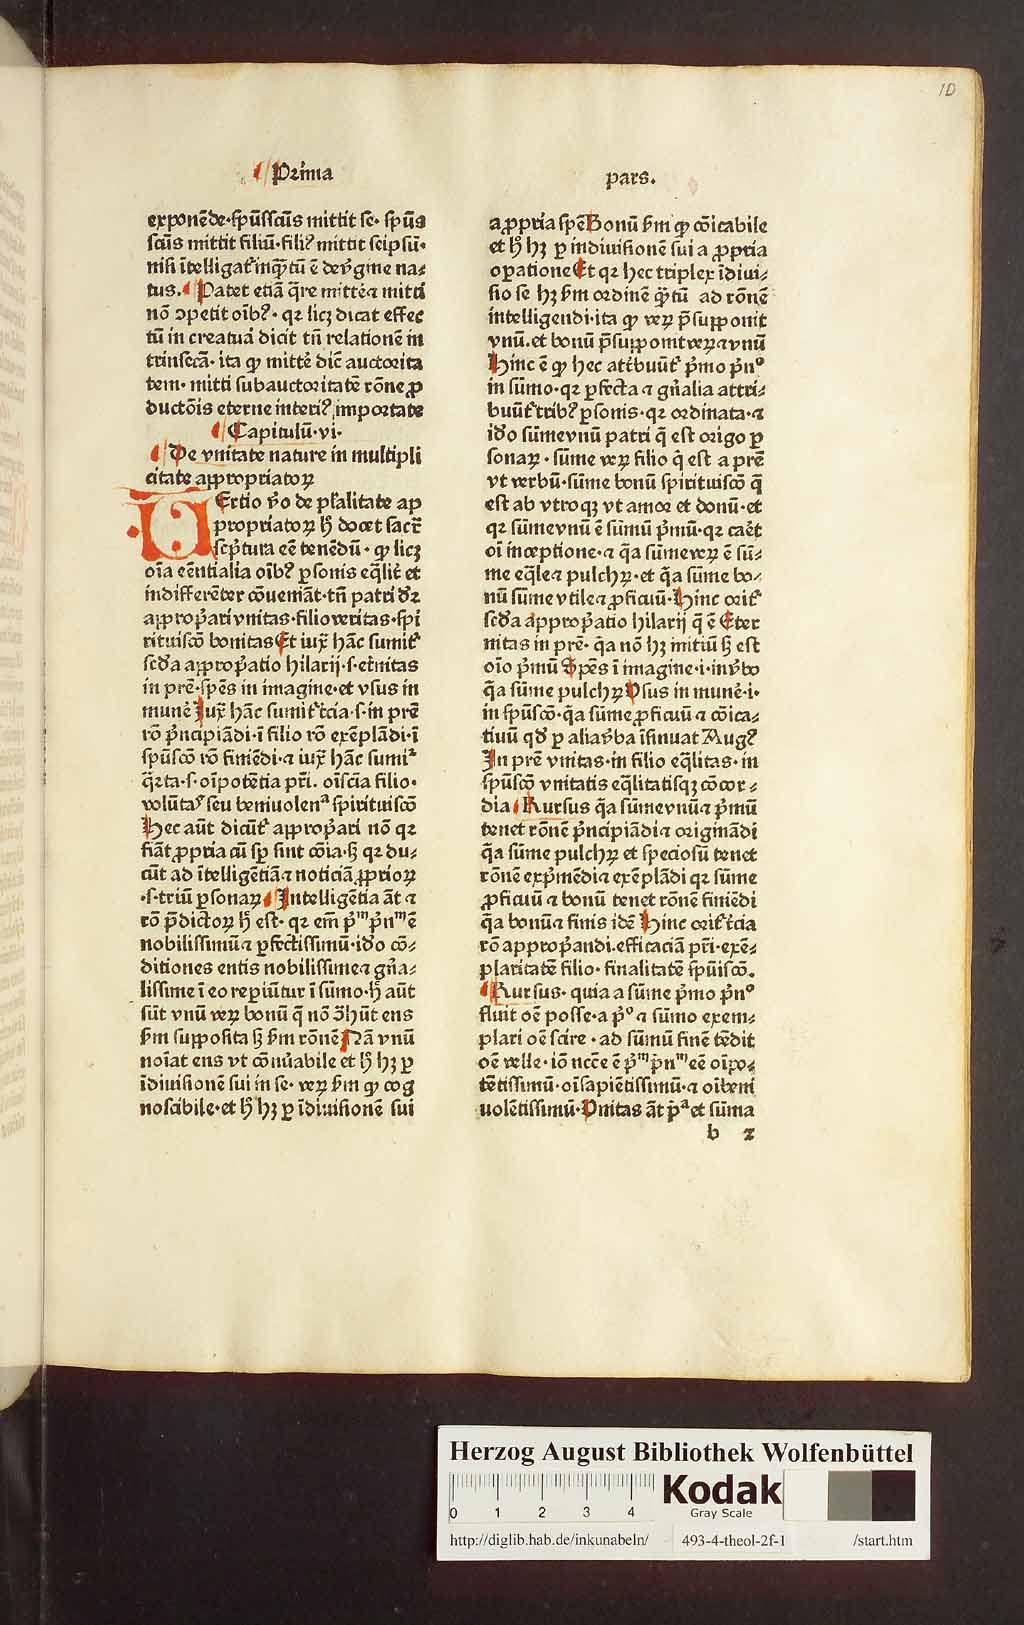 10
Prima pars.
exponēde· spūsscūs mittit se· spūs
scūs mittit filiū· filiꝰ mittit seipsū·
nisi ītelligat᷑ inq̄ꝫtū ē deꝟgine na⸗
tus. Patet etiā q̄re mittere ⁊ mitti
nō ↄpetit oībꝰ· qꝛ licꝫ dicat effec
tū in creatura dicit tn̄ relationē in
trinsecā· ita ꝙ mitte᷑ dic̄ auctorita
tem· mitti subauctoritatē rōne ꝓ
ductōis eterne interiꝰ importate
Capitulū· vi·
De vnitate nature in multipli
citate appropriatoꝝ
Ertio ꝟo de pl̄alitate ap
propriatoꝝ hꝫ docet sacr̄
scp̄tura eē tenēdū· ꝙ licꝫ
oīa eēntialia oībꝰ ꝑsonis eq̄lit᷑ et
indifferēter cōueniāt· tn̄ patri dr̄
appropͥari vnitas· filio veritas· spi
rituiscō bonitas Et iux̄ hāc sumit᷑
scd̄a appropͥatio hilarij· s· et᷑nitas
in pr̄e· spēs in imagine· et vsus in
mune᷑ Iux̄ hāc sumit᷑ t᷑cia· s· in pr̄e
rō pͥncipiādi· ī filio rō exēplādi· ī
spūscō rō finiēdi· ⁊ iux̄ hāc sumit᷑
q̄rta· s· oīpotētia pr̄i· oīsciā filio·
volūtaꝭ seu beniuolenᵃ spirituiscō
Hec aūt dicūt᷑ appropͥari nō qꝛ
fiāt ꝓpria cū sp̄ sint cōia· sꝫ qꝛ du⸗
cūt ad ītelligētiā ⁊ noticiā ꝓprioꝝ
·s· triū ꝑsonaꝝ Intelligētia āt ⁊
rō p̄dictoꝝ hꝫ est· qꝛ em̄ pͥᵐ pͥnᵐ ē
nobilissimū ⁊ ꝑfectissimū· iđo cō⸗
ditiones entis nobilissime ⁊ gn̄a⸗
lissime ī eo reperiūtur ī sūmo· hꝫ aūt
sūt vnū veꝝ bonū q̄ nō ↄ̄hūt ens
ẜm supposita sꝫ ẜm rōnē Nā vnū
noīat ens vt cōnu᷑abile et hꝫ hꝫ ꝑ
īdiuisionē sui in se· veꝝ ẜm ꝙ cog
noscibile· et hꝫ hꝫ ꝑ īdiuisionē sui
a ꝓpria spē Bonū ẜm ꝙ cōicabile
et hꝫ hꝫ ꝑ indiuisionē sui a ꝓpria
oꝑatione Et qꝛ hec triplex īdiui⸗
sio se hꝫ ẜm ordinē q̄ꝫtū ad rōnē
intelligendi· ita ꝙ veꝝ p̄supponit
vnū. et bonū p̄supponit veꝝ ⁊ vnū
Hinc ē ꝙ hec att᷑buūt᷑ pͥmo pͥn°
in sūmo· qꝛ ꝑfecta ⁊ gn̄alia attri⸗
buūt᷑ tribꝰ ꝑsonis· qꝛ ordinata· ⁊
iđo sūme vnū patri q̄ est origo ꝑ
sonaꝝ· sūme veꝝ filio q̄ est a pr̄e
vt verbū· sūme bonū spirituiscō q̄
est ab vtroqꝫ vt amor et donū· et
qꝛ sūme vnū ē sūmū pͥmū· qꝛ caret
oī inceptione· ⁊ q̄a sūme veꝝ ē sū⸗
me eq̄le ⁊ pulchꝝ· et q̄a sūme bo⸗
nū sūme vtile ⁊ ꝓficuū· Hinc orit᷑
scd̄a appropͥatio hilarij q̄ ē Eter
nitas in pr̄e· q̄a nō hꝫ initiū sꝫ est
oīo pͥmū Spēs ī imagine· i· inꝟbo
q̄a sūme pulchꝝ Vsus in mune᷑· i·
in spūscō· q̄a sūme ꝓficuū ⁊ cōica⸗
tiuū qđ ꝑ alia ꝟba īsinuat Augꝰ
In pr̄e vnitas· in filio eq̄litas· in
spūscō vnitatis eq̄litatisqꝫ cōcor⸗
dia Rursus q̄a sūme vnū ⁊ pͥmū
tenet rōnē pͥncipiādi ⁊ originādi
q̄a sūme pulchꝝ et speciosū tenet
rōnē expͥmēdi ⁊ exēplādi qꝛ sūme
ꝓficuū ⁊ bonū tenet rōnē finiēdi
q̄a bonū ⁊ finis idē Hinc orit᷑ t᷑cia
rō appropͥandi. efficaciā pr̄i· exē⸗
plaritatē filio· finalitatē spūiscō.
Rursus· quia a sūme pͥmo pͥn°
fluit oē posse· a p°͛ ⁊ sūmo exem⸗
plari oē scire· ad sūmū finē tēdit
oē velle· iō ncc̄e ē pͥᵐ pͥnᵐ eē oīpo⸗
tētissimū· oīsapiētissimū· ⁊ oībeni
uolētissimū· Vnitas āt pͥᵃ et sūma
b 2
Herzog August Bibliothek Wolfenbüttel
0 1 2 3 4
Kodak
Gray Scale
http://diglib.hab.de/inkunabeln/ 493-4-theol-2f-1 /start.htm